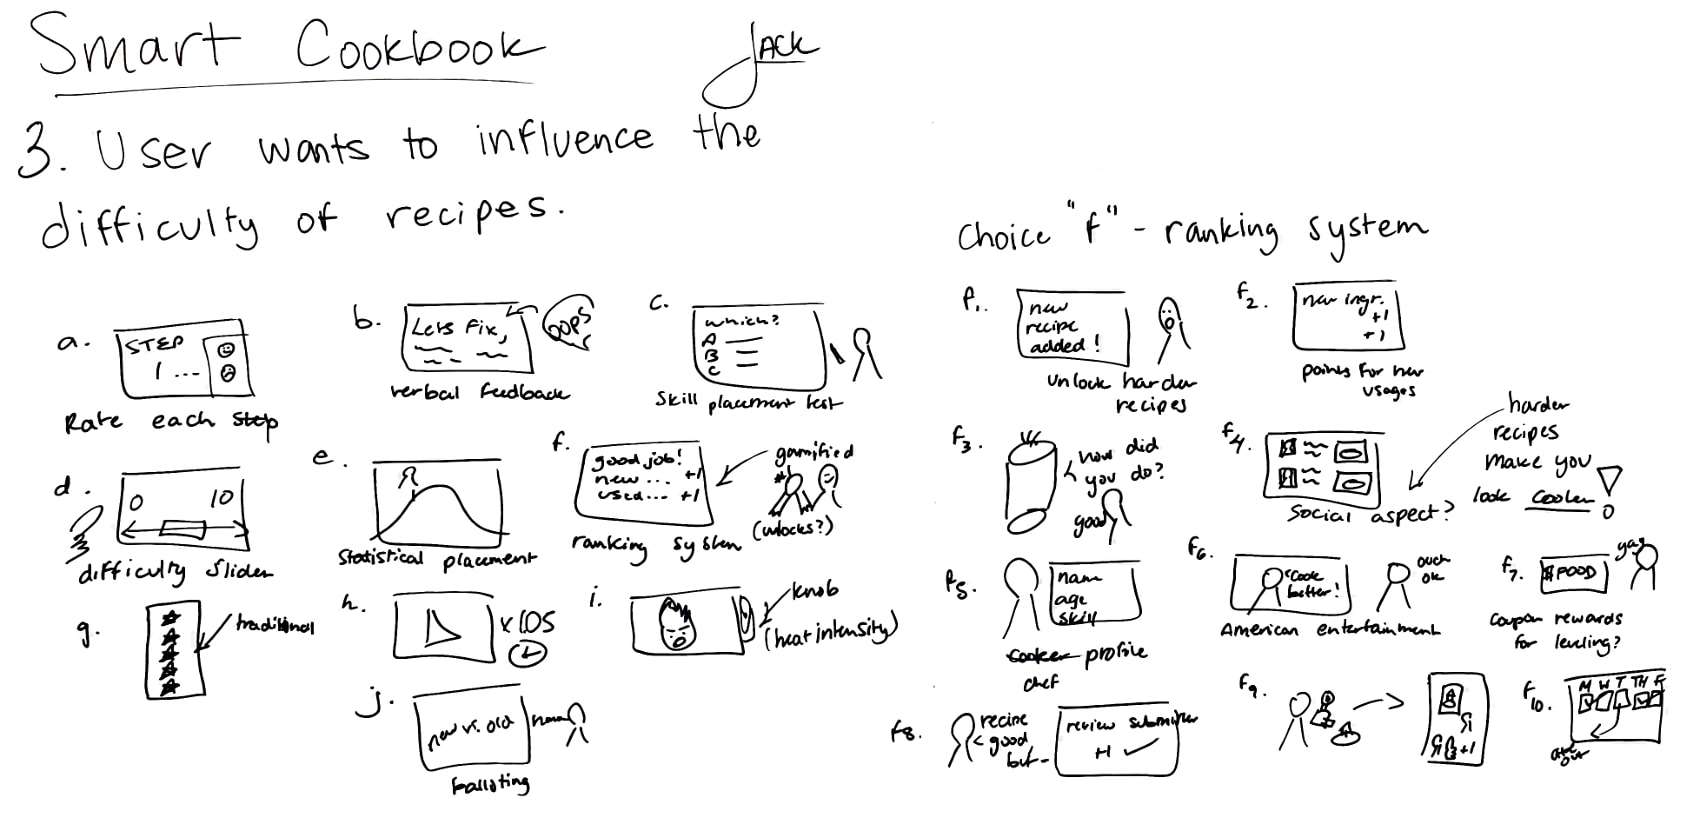 Smart Cookbook
JACK
3. User wants to influence the
difficulty of recipes.
a.
STEP
1 ...
Rate each step
b.
Lets Fix,
oops
verbal feedback
c.
which?
A
B
C
Skill placement test
d.
0 10
difficulty slider
e.
Statistical placement
f.
good job!
new ... +1
used... +1
ranking system
gamified
#1
(unlocks?)
g.
traditional
h.
x 1.05
i.
knob
(heat intensity)
j.
new vs. old
balloting
Choice "f" - ranking system
f1.
new
recipe
added!
unlock harder
recipes
f2.
new ingr.
+1
+1
points for new
usages
f3.
how did
you do?
good
f4.
Social aspect?
harder
recipes
make you
look cooler!
f5.
name
age
skill
cooker profile
chef
f6.
"Cook
better!
ouch
ok
American entertainment
f7.
$FOOD
yay
coupon rewards
for leveling?
f8.
recipe
good
but-
review submitter
+1
f9.
+1
f10.
M W T TH F
ate
out